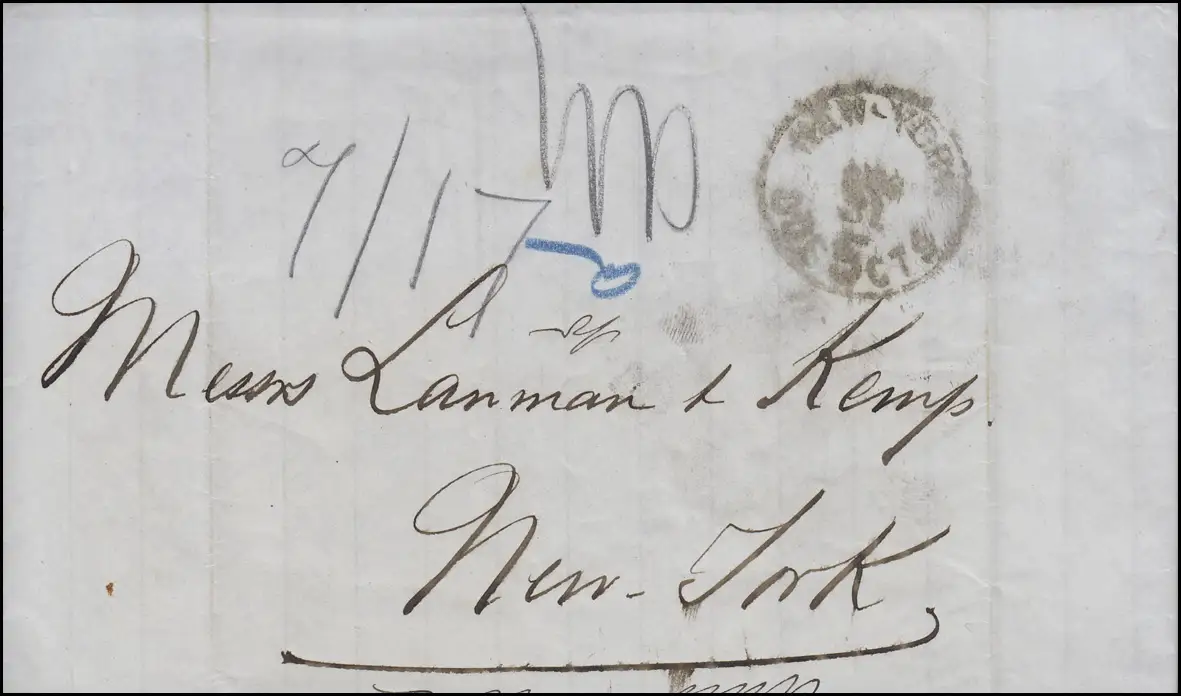 7/17
NEW-YORK
DUE 5 CTS
Messrs Lanman & Kemp
New-York